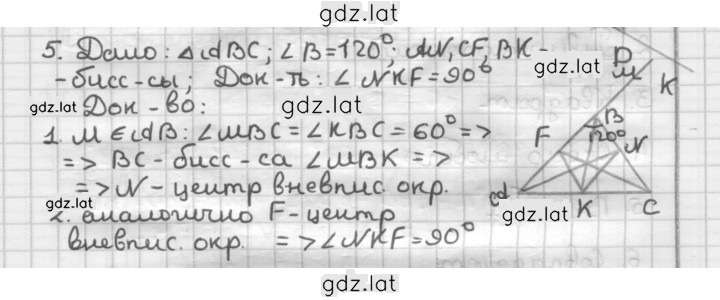 gdz.lat
5. Дано: △ABC; ∠B=120°; AN, CF, BK -
- бисс-сы; Док-ть: ∠NKF=90°
gdz.lat
gdz.lat Док-во: gdz.lat
1. M∈AB: ∠MBC=∠KBC=60° =>
=> BC - бисс-са ∠MBK =>
=> N - центр вневпис. окр.
gdz.lat
2. аналогично F - центр
вневпис. окр. => ∠NKF=90°
D
M
K
B
120°
F
N
A
K
C
gdz.lat
gdz.lat